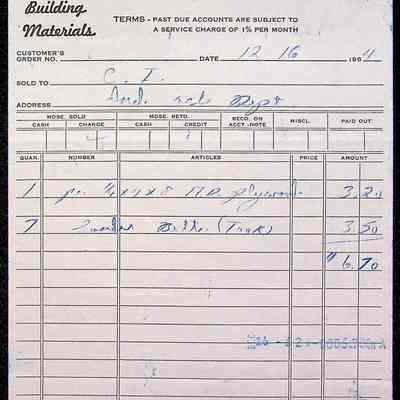 Building
Materials
TERMS - PAST DUE ACCOUNTS ARE SUBJECT TO
A SERVICE CHARGE OF 1% PER MONTH
CUSTOMER'S
ORDER NO. DATE 12 16 1964
SOLD TO C. I.
ADDRESS Ind.
MDSE. SOLD MDSE. RETD. RECD. ON ACCT.-NOTE MISCL. PAID OUT
CASH CHARGE CASH CREDIT
QUAN. NUMBER ARTICLES PRICE AMOUNT
1 pc 1/4 x 4 x 8 Plywood 3.20
7 3.50
$ 6.70